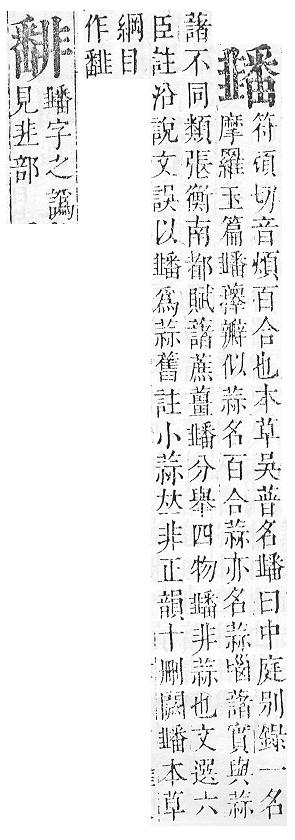 䪤
符頑切音煩百合也本草吳普名䪤曰中庭別錄一名
摩羅玉篇䪤瓣似蒜名百合蒜亦名蒜腦藷實與蒜
諸不同類張衡南都賦藷蔗薑䪤分舉四物䪤非蒜也文選六
臣註沿說文誤以䪤為蒜舊註小蒜𠀤非正韻十刪闕䪤本草
綱目
作
䪤字之譌
見韭部